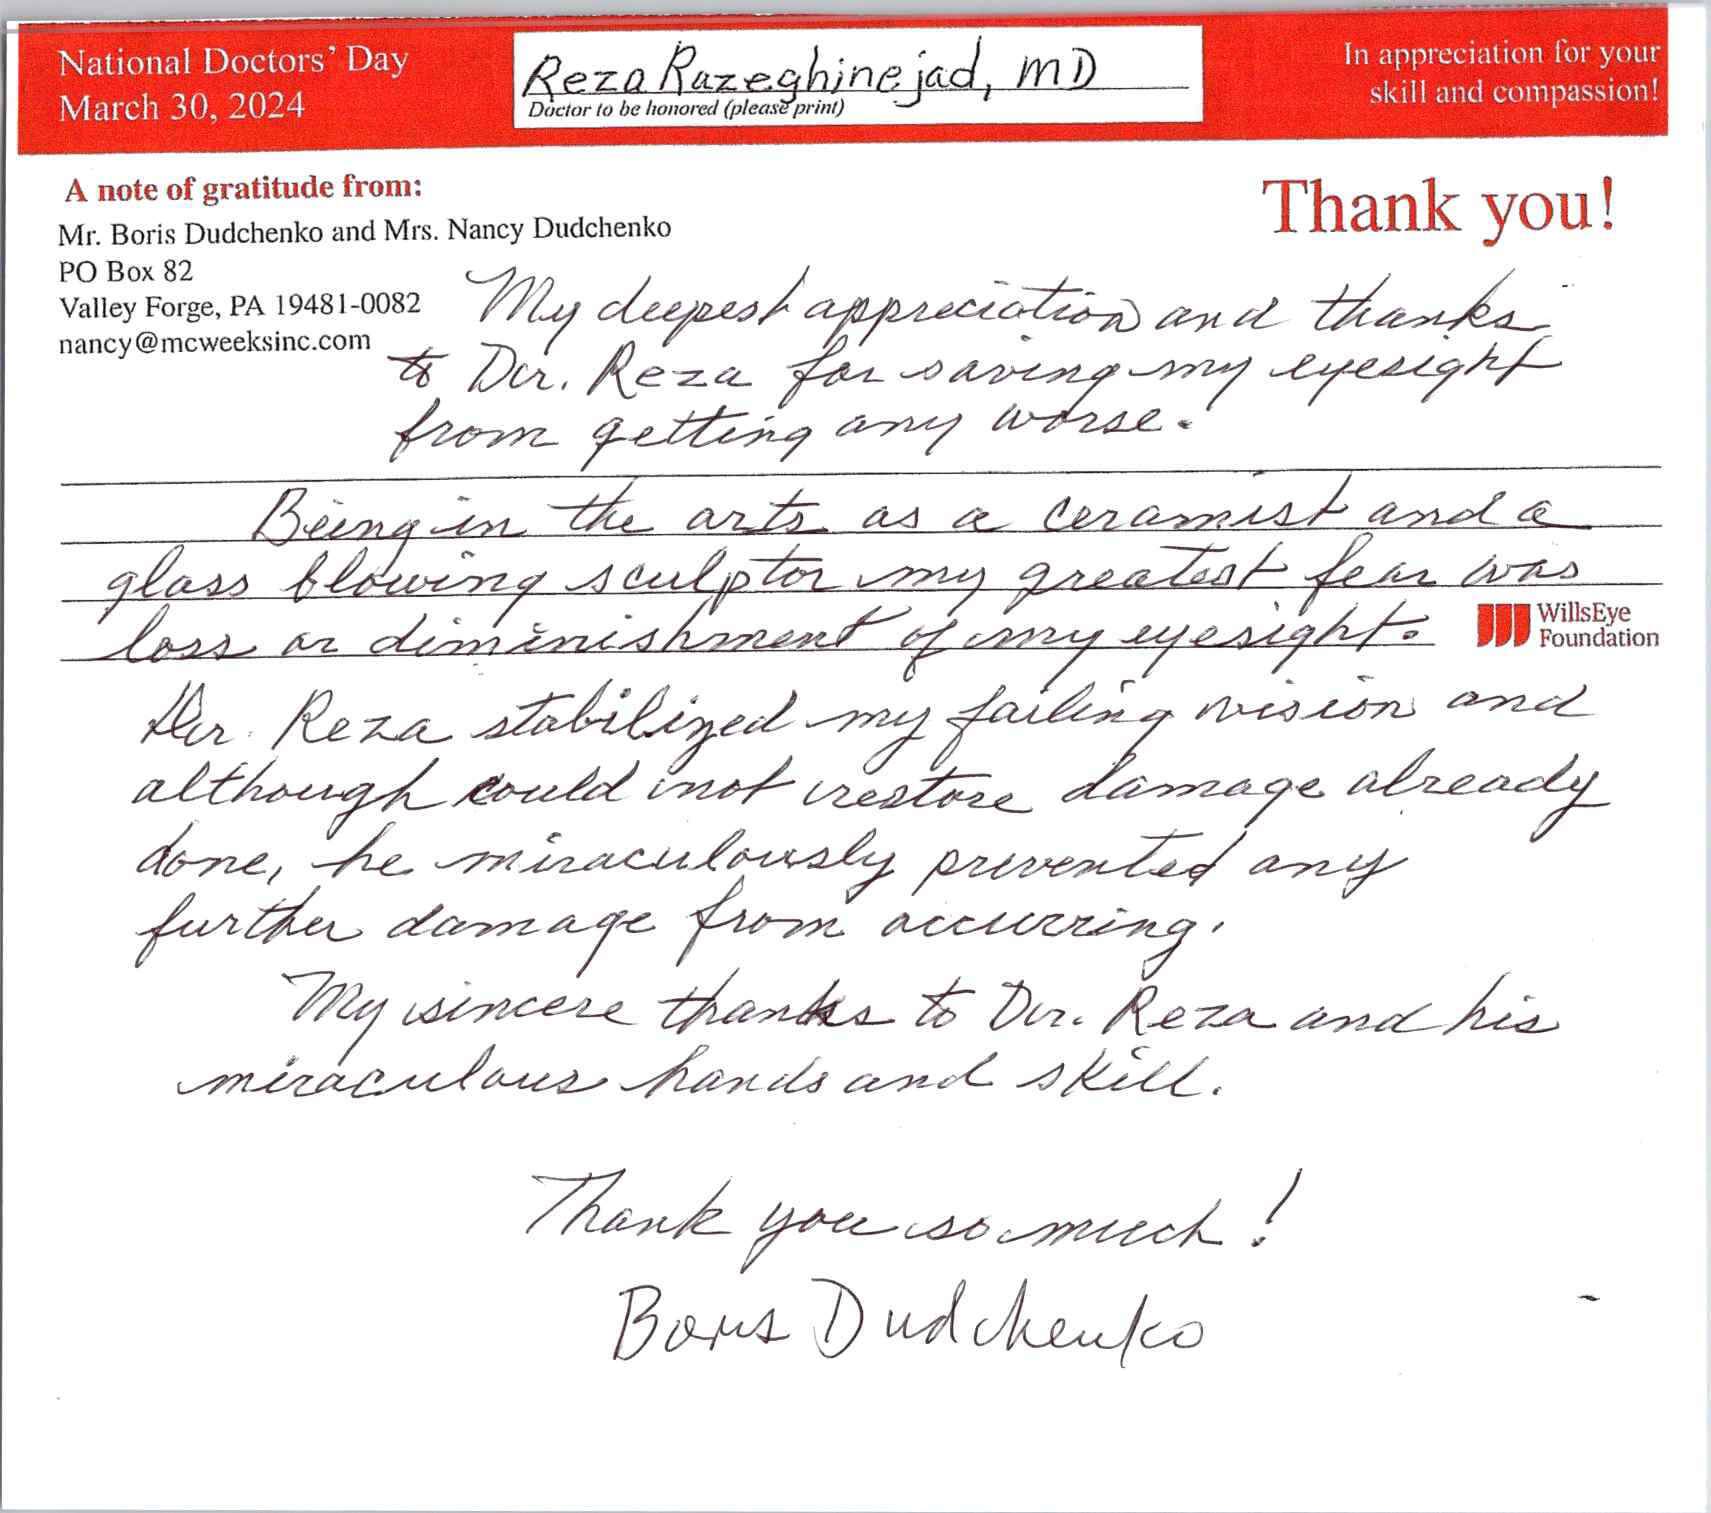 National Doctors' Day
March 30, 2024
Reza Razeghinejad, MD
Doctor to be honored (please print)
In appreciation for your
skill and compassion!
A note of gratitude from:
Thank you!
Mr. Boris Dudchenko and Mrs. Nancy Dudchenko
PO Box 82
Valley Forge, PA 19481-0082
nancy@mcweeksinc.com
My deepest appreciation and thanks
to Dr. Reza for saving my eyesight
from getting any worse.
Being in the arts as a ceramist and a
glass blowing sculptor my greatest fear was
loss or diminishment of my eyesight.
WillsEye
Foundation
Dr. Reza stabilized my failing vision and
although could not restore damage already
done, he miraculously prevented any
further damage from occurring.
My sincere thanks to Dr. Reza and his
miraculous hands and skill.
Thank you so much!
Boris Dudchenko